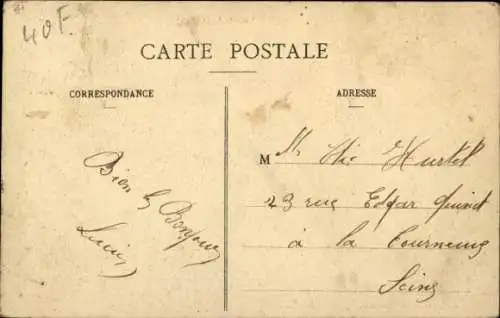 40F.
CARTE POSTALE
CORRESPONDANCE
ADRESSE
Bien le Bonjour
M
23 rue Edgar Quinet
à la Courneuve
Seine